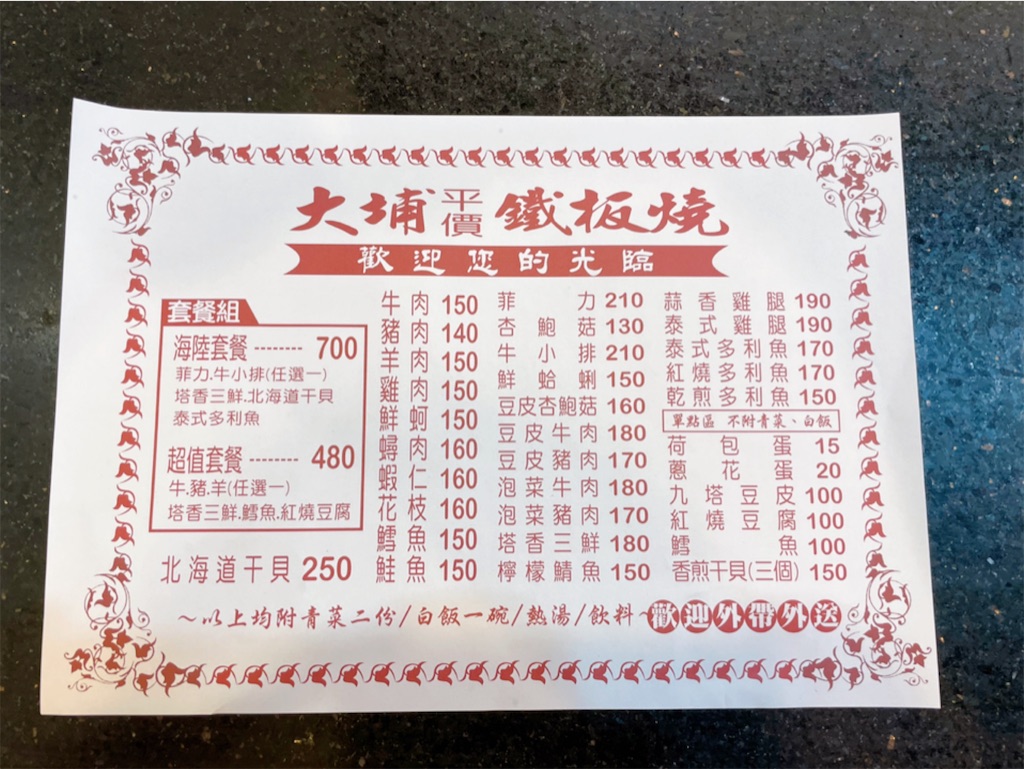 大埔平價鐵板燒
歡迎您的光臨
套餐組
海陸套餐 -------- 700
菲力.牛小排(任選一)
塔香三鮮.北海道干貝
泰式多利魚
超值套餐 -------- 480
牛.豬.羊(任選一)
塔香三鮮.鱈魚.紅燒豆腐
北海道干貝 250
牛肉 150
豬肉 140
羊肉 150
雞肉 150
鮮蚵 150
蟳肉 160
蝦仁 160
花枝 160
鱈魚 150
鮭魚 150
菲力 210
杏鮑菇 130
牛小排 210
鮮蛤蜊 150
豆皮杏鮑菇 160
豆皮牛肉 180
豆皮豬肉 170
泡菜牛肉 180
泡菜豬肉 170
塔香三鮮 180
檸檬鯖魚 150
蒜香雞腿 190
泰式雞腿 190
泰式多利魚 170
紅燒多利魚 170
乾煎多利魚 150
單點區 不附青菜、白飯
荷包蛋 15
蔥花蛋 20
九塔豆皮 100
紅燒豆腐 100
鱈魚 100
香煎干貝(三個) 150
~以上均附青菜二份/白飯一碗/熱湯/飲料~歡迎外帶外送